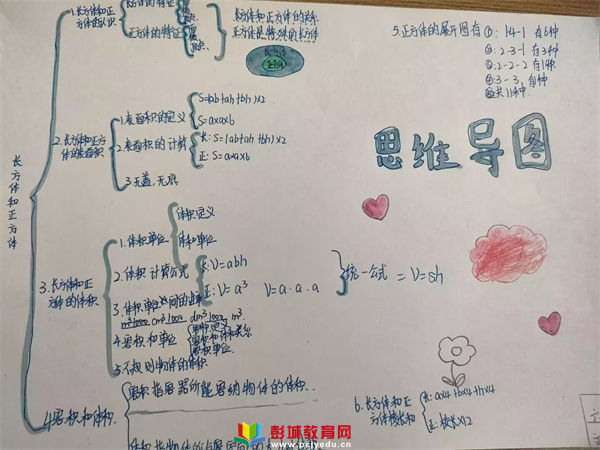 长方体和正方体
1.长方体和正方体的认识
长方体的特征
正方体的特征
长方体和正方体的关系
正方体是特殊的长方体
长方体
正方体
2.长方体和正方体的表面积
1.表面积的定义
S=(ab+ah+bh)×2
S=a×a×6
2.表面积的计算
长:S=(ab+ah+bh)×2
正:S=a×a×6
3.无盖,无底
3.长方体和正方体的体积
1.体积单位
体积定义
体积单位
2.体积计算公式
长:V=abh
正:V=a³
V=a·a·a
统一公式 = V=sh
3.体积单位间的进率
4.容积和单位
容积单位
5.不规则物体的体积
4.容积和体积
容积指容器所能容纳物体的体积..
5.正方体的展开图有①:1-4-1 有6种
②:2-3-1 有3种
③:2-2-2 有1种
④:3-3,有1种
共11种.
思维导图
6.长方体和正方体棱长和
长:a×4+b×4+h×4
正:棱长×12
彭城教育网
www.pcjyedu.cn